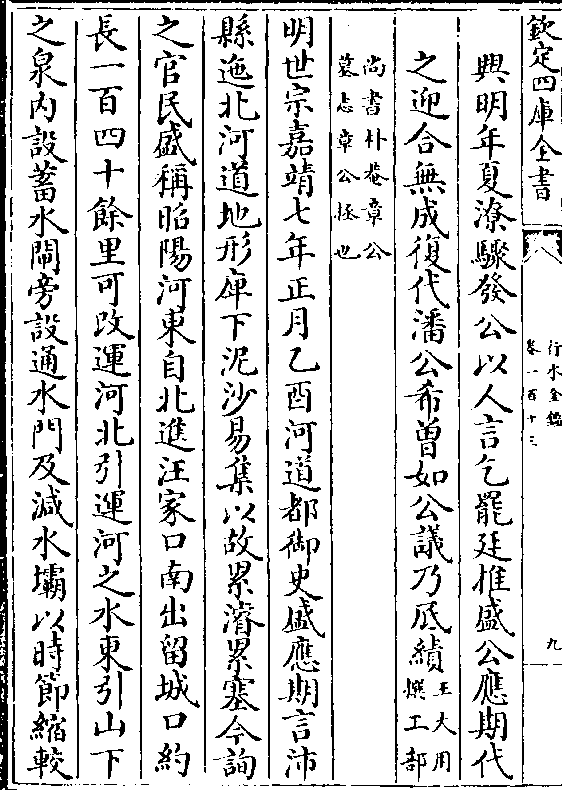 欽定四庫全書
行水金鑑
卷一百十三
九
興明年夏潦驟發公以人言乞罷廷推盛公應期代
之迎合無成復代潘公希曽如公議乃底績王大用撰工部
尚書朴菴章公墓志章公拯也
明世宗嘉靖七年正月乙酉河道都御史盛應期言沛
縣迤北河道地形庳下泥沙易集以故累濬累塞今詢
之官民盛稱昭陽河東自北進汪家口南出留城口約
長一百四十餘里可改運河北引運河之水東引山下
之泉内設蓄水閘旁設通水門及減水壩以時節縮較